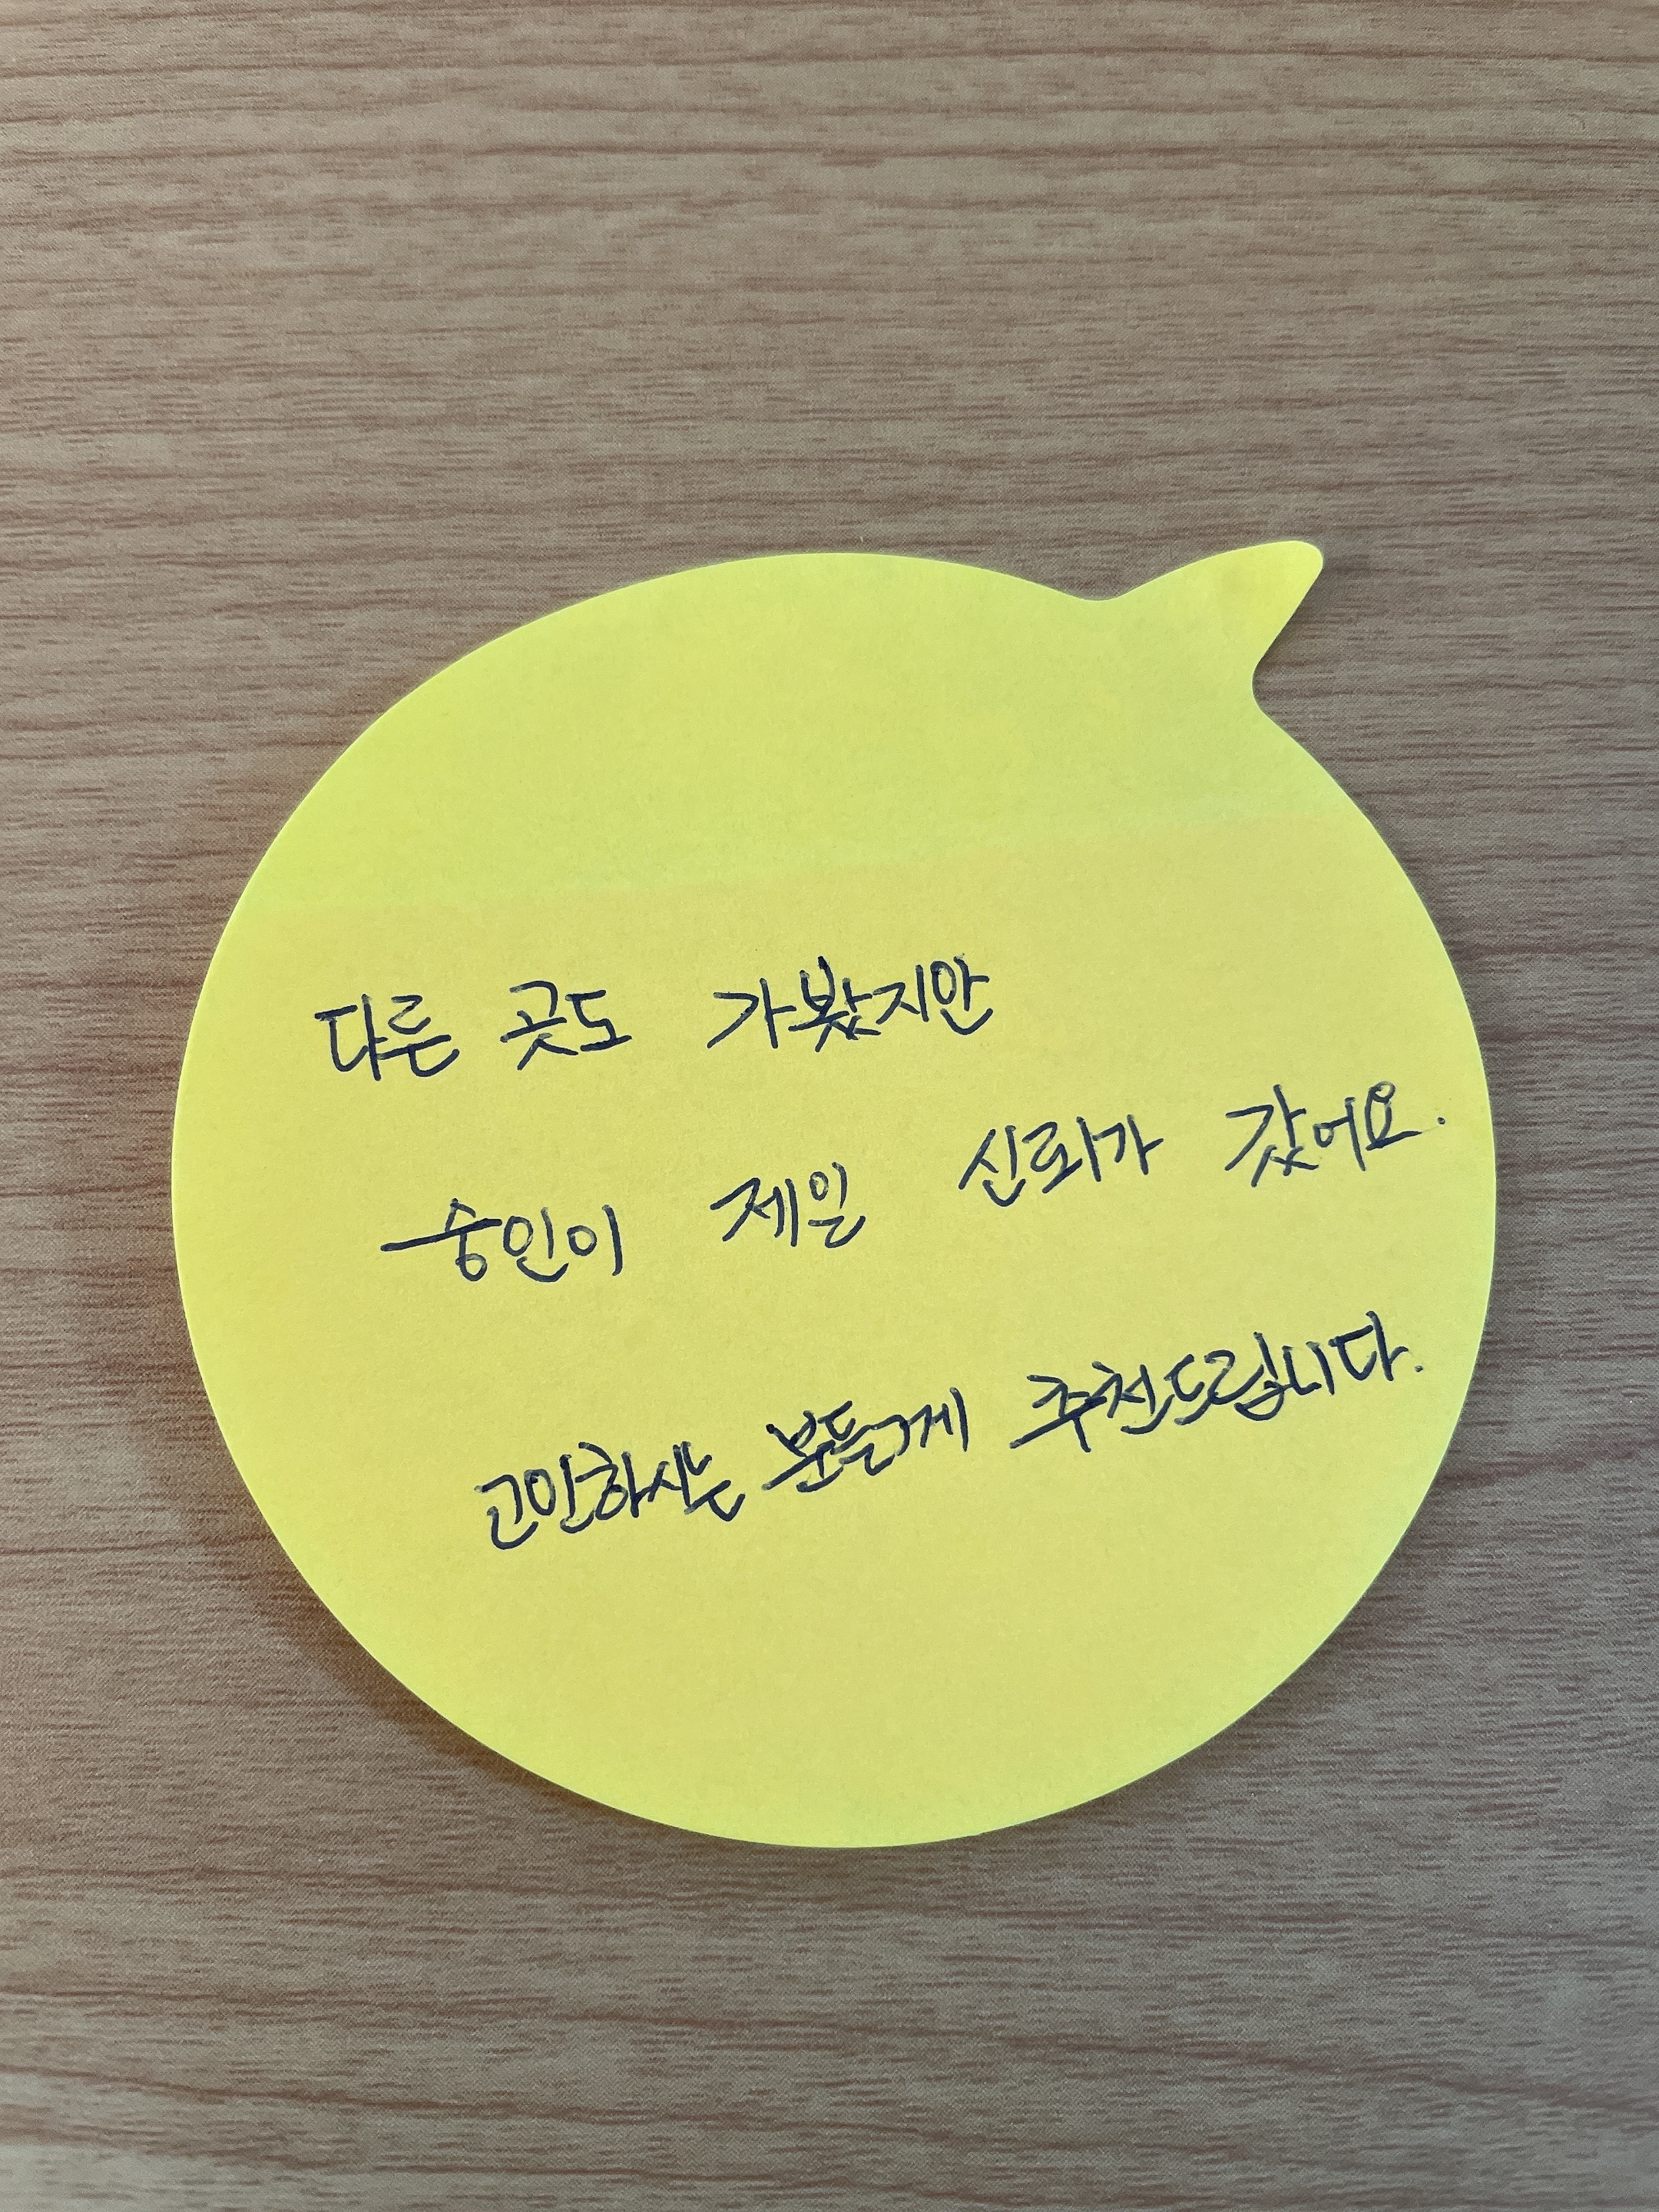 다른 곳도 가봤지만
숭인이 제일 신뢰가 갔어요.
고민하시는 분들께 추천드립니다.